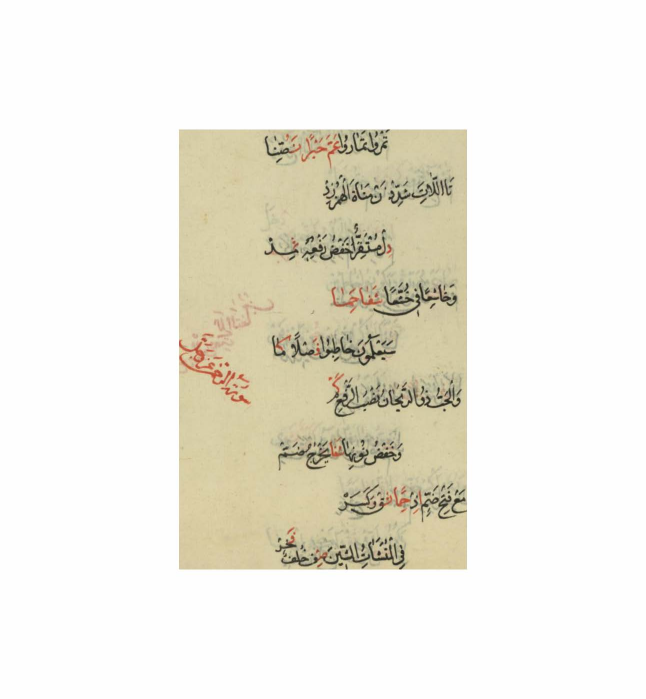 تَمْرُوا تُمَارُوا عَمَّ حَبْرًا نَصُّنَا
تَا اللَّاتَ شَدِّدْ مَنَاةَ الْهَمْزَ زِدْ
دِلْ مُسْتَقِرٌّ خَفْضُ رَفْعِهِ ثَمِدْ
وَخَاشِعًا فِي خُشَّعًا شَفَا حِمَا
سَيَعْلَمُونَ خَاطِبُوا فَصْلًا كَمَا
وَالْحَبُّ ذُو الرَّيْحَانِ نَصْبُ الرَّفْعِ كَمْ
وَخَفْضُ نُونِهَا شَفَا يَخْرُجُ ضَمّ
مَعْ فَتْحِ ضَمٍّ إِذْ حِمَا ثِقْ وَكَسَرْ
فِي الْمُنْشَآتُ الشِّينَ صِفْ خُلْفًا فَخَرْ